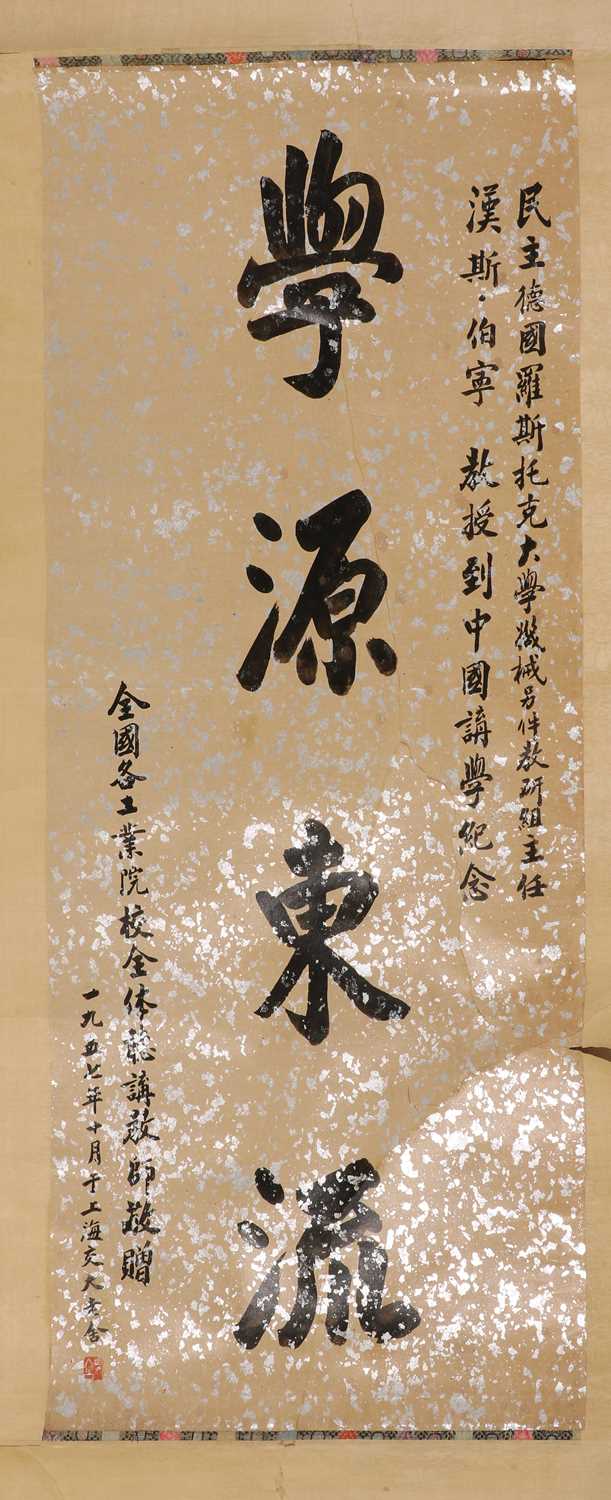 民主德國羅斯托克大學機械另件教研組主任
漢斯·伯寧 教授到中國講學紀念
學源東流
全國各工業院校全体聽講教師敬贈
一九五七年十月于上海交大老舍